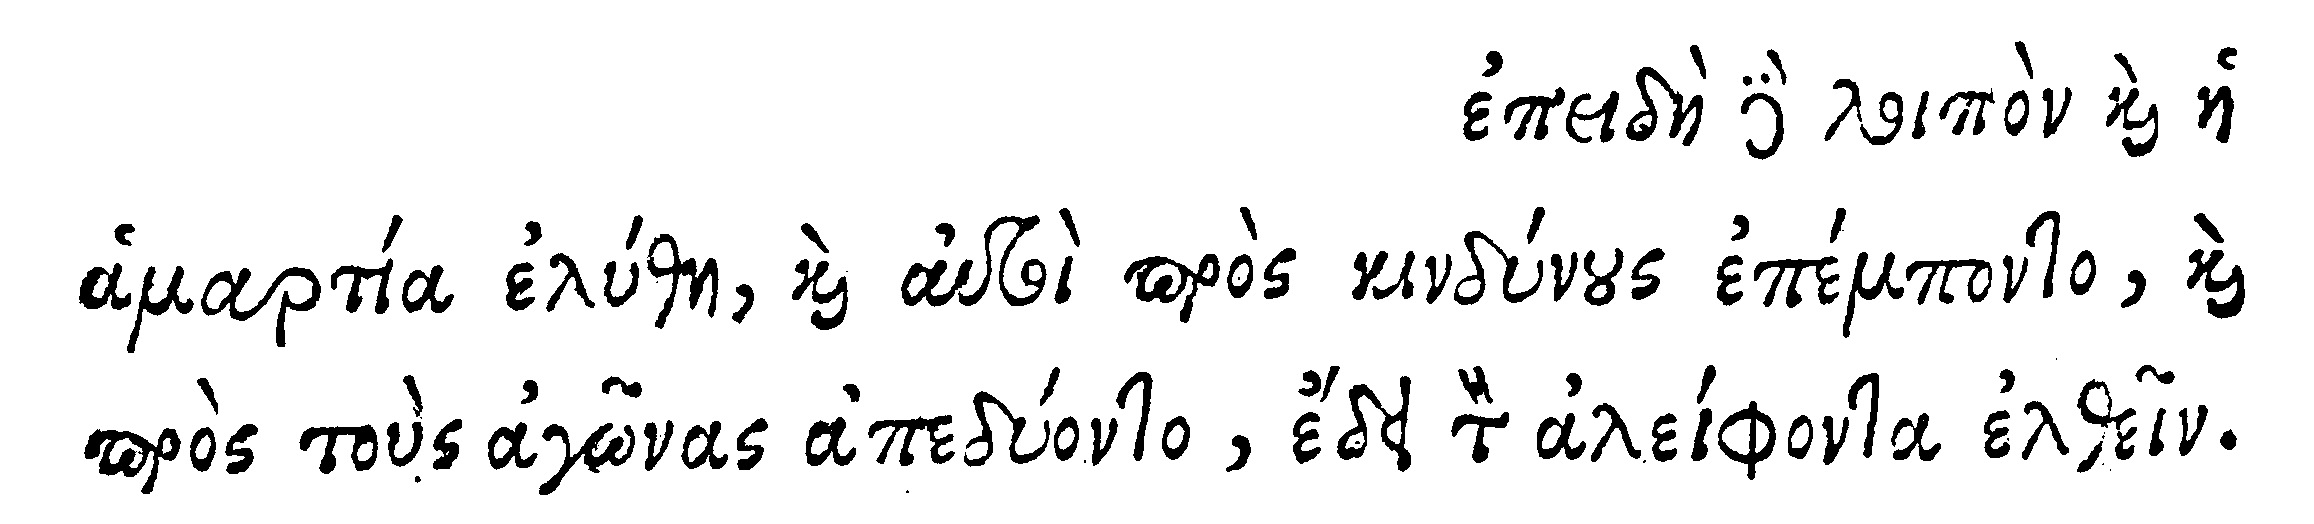 ἐπειδὴ δὲ λοιπὸν καὶ ἡ
ἁμαρτία ἐλύθη, καὶ αὐτοὶ πρὸς κινδύνους ἐπέμποντο, καὶ
πρὸς τοὺς ἀγῶνας ἀπεδύοντο, ἔδει τὸν ἀλείφοντα ἐλθεῖν.